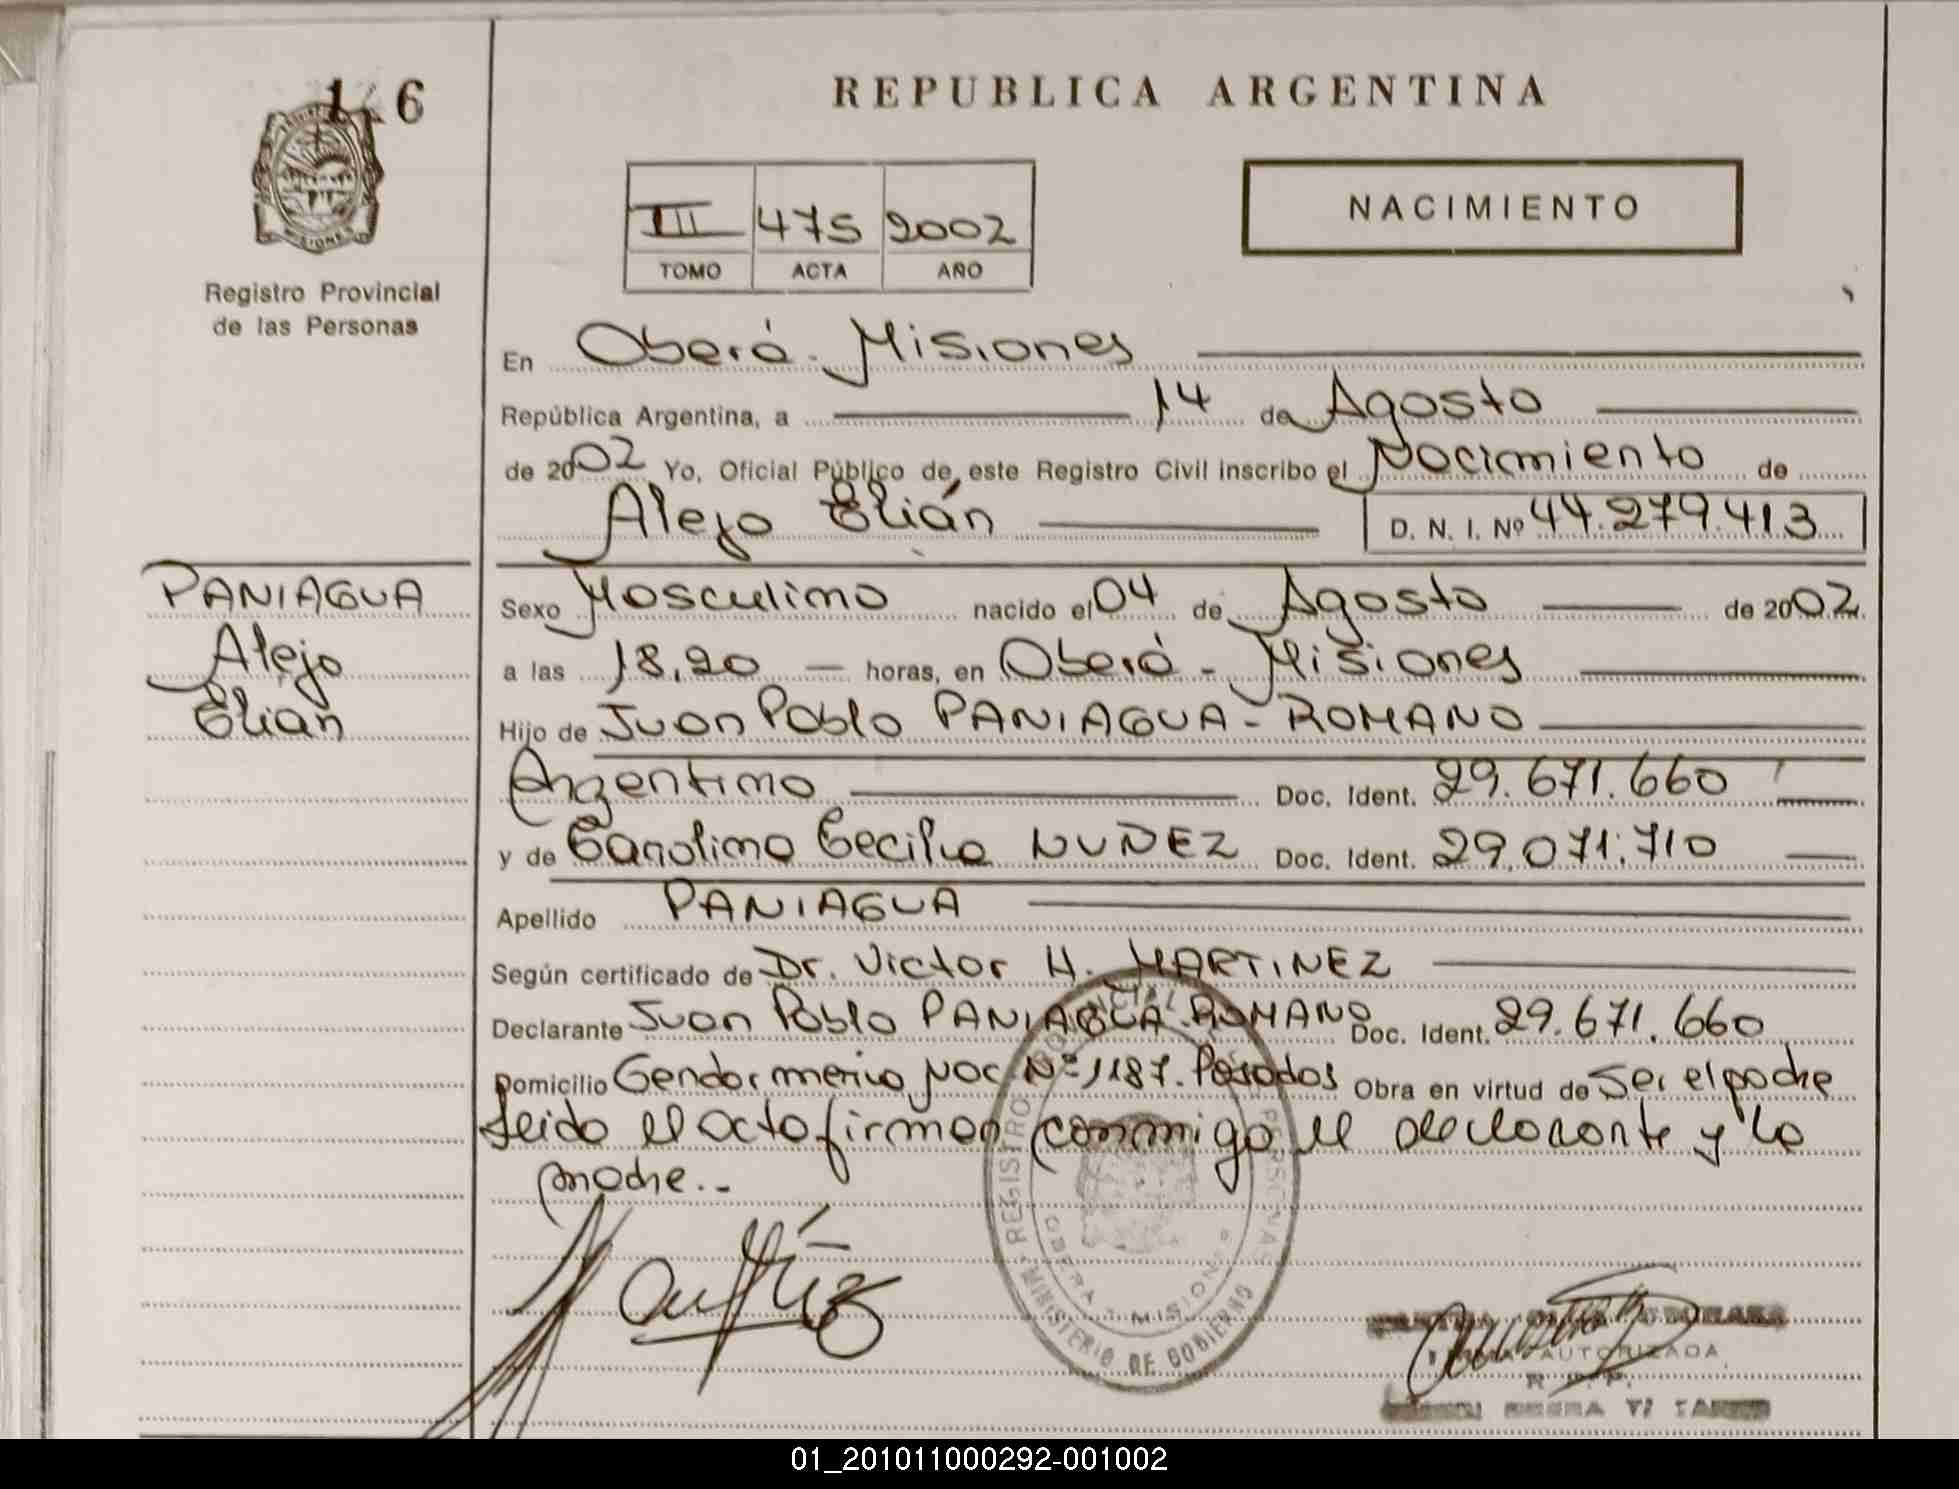 1 6
REPUBLICA ARGENTINA
MISIONES
Registro Provincial
de las Personas
III 475 2002
TOMO ACTA AÑO
NACIMIENTO
En Oberá - Misiones
República Argentina, a 14 de Agosto
de 2002 Yo, Oficial Público de este Registro Civil inscribo el Nacimiento de
Alejo Elián D. N. I. Nº 44.279.413
PANIAGUA
Alejo
Elian
Sexo Masculino nacido el 04 de Agosto de 2002
a las 18,20 — horas, en Oberá - Misiones
Hijo de Juan Pablo PANIAGUA - ROMANO
Argentino Doc. Ident. 29.671.660
y de Carolina Cecilia NUÑEZ Doc. Ident. 29.071.710
Apellido PANIAGUA
Según certificado de Dr. Victor H. MARTINEZ
Declarante Juan Pablo PANIAGUA-ROMANO Doc. Ident. 29.671.660
Domicilio Gendarmeria Nac Nº 1187. Posadas Obra en virtud de Ser el padre
Leido el acta firman conmigo el declarante y la
madre.-
REGISTRO PROVINCIAL DE LAS PERSONAS
OBERA - MISIONES
MINISTERIO DE GOBIERNO
FIRMA AUTORIZADA
R. P. P.
01_201011000292-001002